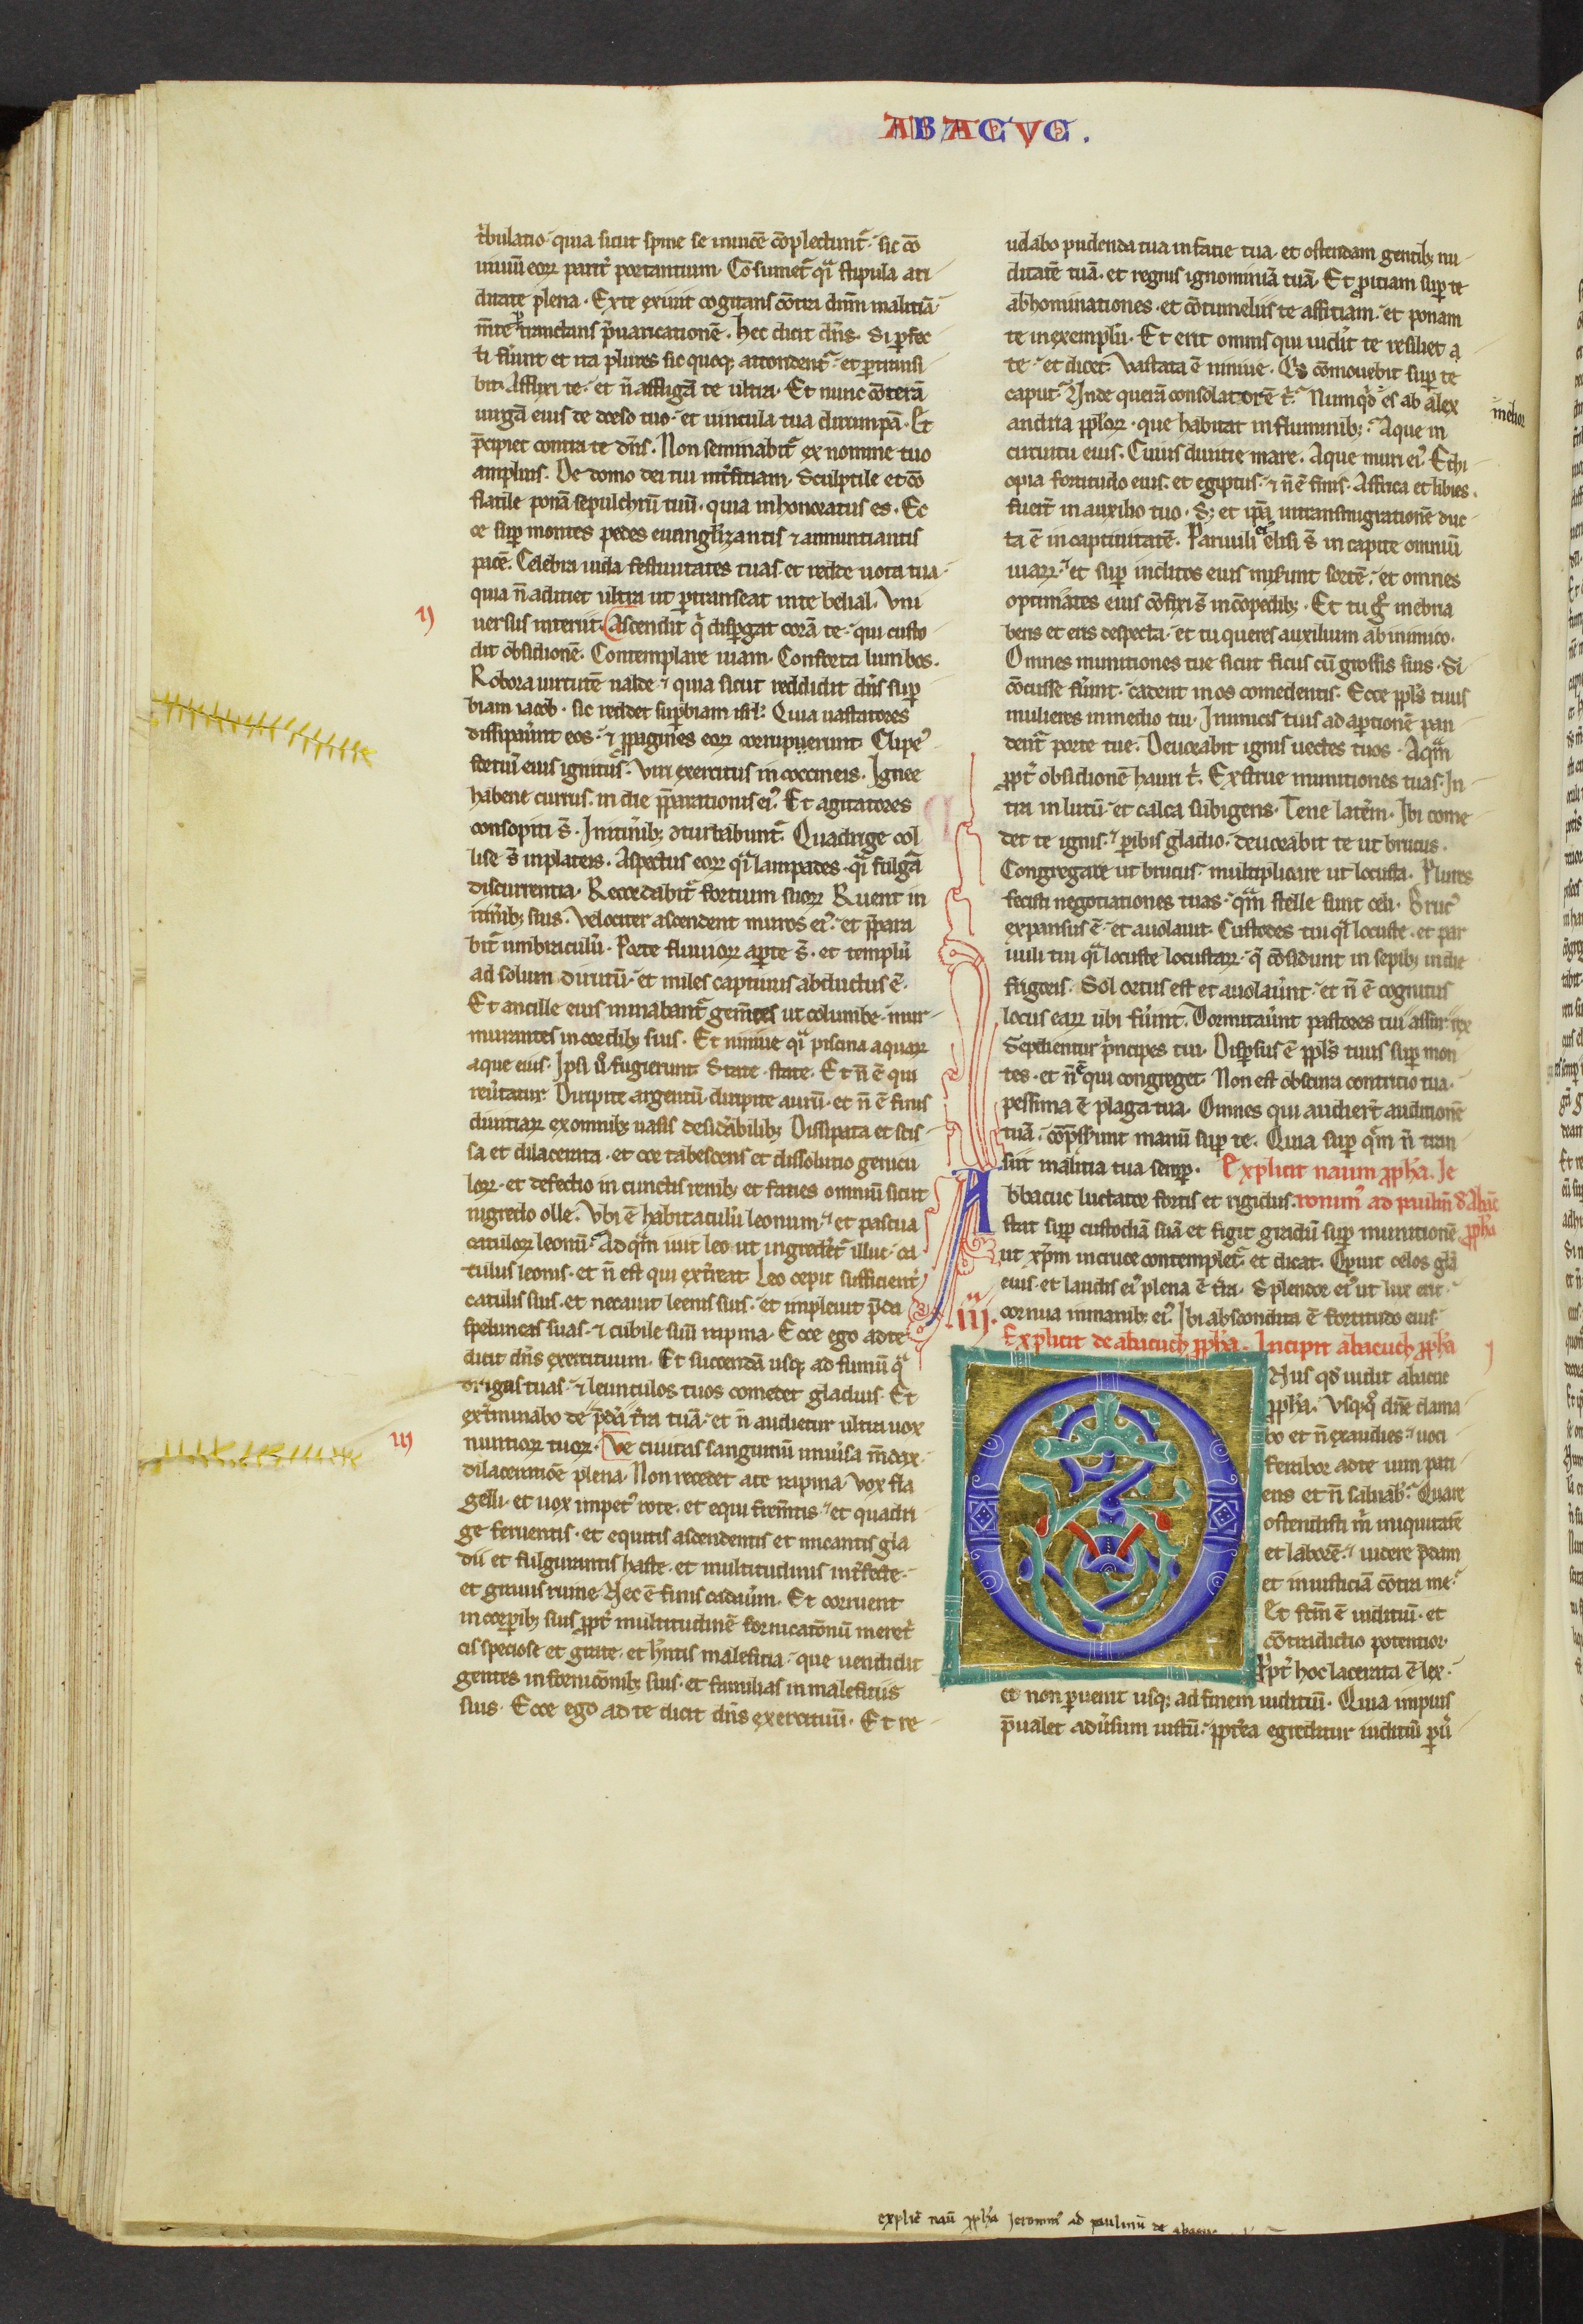 ABACVC.
t̄bulatio· quia sicut spine se inuicē cōplectunt᷑· sic cō
uiuiū eoꝝ parit̄ portantium· Cōsumet᷑ qͣ stipula ari
ditate plena· Ex te exiuit cogitans cōtra dn̄m malitiā·
m̄te ꝑtractans p̄uaricationē· hec dicit dn̄s· Si ꝑfec
ti fūint et ita plures sic quoqꝫ attondent᷑· et ꝑtransi
bit· Afflixi te· et n̄ affligā te ultra· Et nunc cōterā
uirgā eius de dorso tuo· et uincula tua dirumpā· Et
p̄cipiet contra te dn̄s· Non seminabit᷑ ex nomine tuo
amplius· De domo dei tui int̄ficiam· Sculptile et cō
flatile ponā sepulchrū tuū· quia inhonoratus es· Ec
ce suꝑ montes pedes euuanglizantis ⁊ annuntiantis
pacē· Celebra iuda festiuitates tuas· et redde uota tua·
quia n̄ adiciet ultra ut ꝑtranseat in te belial· Vni
ij
uersus interiit· Ascendit q̄ dispergat corā te· qui custo
dit obsidionē· Contemplare uiam· Conforta lumbos·
Robora uirtutē ualde· ⁊ quia sicut reddidit dn̄s suꝑ
biam iacob· sic reddet suꝑbiam isrl̄· Quia uastatores
dissipauint eos· ⁊ ꝓpagines eoꝝ corrupuerunt· Clipeꝰ
fortiū eius ignitus· Viri exercitus in coccineis· Ignee
habene currus· in die p̄parationis eiꝰ· Et agitatores
consopiti s̄· In itinibꝫ ɔturbabunt᷑· Quadrige col
lise s̄ in plateis· Aspectus eoꝝ qͣ lampades· qͣ fulgā
discurrentia· Recordabit᷑ fortium suoꝝ Ruent in
itinibꝫ suis· Velociter ascendent muros eiꝰ· et p̄para
bit᷑ umbraculū· Porte fluuioꝝ aꝑte s̄· et templū
ad solum dirutū· et miles captiuus abductus ē·
Et ancille eius minabant᷑ gem̄tes ut columbe· mur
murantes in cordibꝫ suis· Et niniue qͣ piscina aquaꝝ
aque eius· Ipsi u̇ fugierunt State· state· Et n̄ ē qui
reūtatur· Diripite argentū· diripite aurū· et n̄ ē finis
diuitiaꝝ ex omnibꝫ uasis desid̄abilibꝫ Dissipata et scis
sa et dilacerata· et cor tabescens et dissolutio genicu
loꝝ· et defectio in cunctis renibꝫ et facies omniū sicut
nigredo olle· Vbi ē habitaculū leonum· et pascua
catuloꝝ leonū· Ad qͣm iuit leo ut ingredet᷑ illuc· ca
tulus leonis· et n̄ est qui ext̄reat· Leo cepit sufficient᷑
catulis suis· et necauit leenis suis· et impleuit p̄da
speluncas suas· ⁊ cubile suū rapina· Ecce ego ad te
dicit dn̄s exercituum· Et succendā usqꝫ ad fumū qͣ
drigas tuas· ⁊ leunculos tuos comedet gladius· Et
ext̄minabo de p̄da t̄ra tuā· et n̄ audietur ultra uox
iij
nuntioꝝ tuoꝝ· Ve ciuitas sanguinū uniūsa m̄dax·
dilaceratiōe plena· Non recedet a te rapina· Vox fla
gelli· et uox impetꝰ rote· et equi frem̄tis· et quadri
ge feruentis· et equitis ascendentis et micantis gla
dii et fulgurantis haste· et multitudinis int̄fecte·
et grauis ruine Nec ē finis cadauūm· Et corruent
in corꝑibꝫ suis ꝓpt̄ multitudinē fornicatōnū meret᷑
cis speciose et grate· et hn̄tis maleficia· que uendidit
gentes in fornicōnibꝫ suis· et familias in maleficiis
suis· Ecce ego ad te dicit dn̄s exercituū· Et re
uelabo pudenda tua in facie tua· et ostendam gentibꝫ nu
ditatē tuā· et regnis ignominiā tuā· Et ꝓiciam suꝑ te
abhominationes· et cōtumeliis te afficiam· et ponam
te in exemplū· Et erit omnis qui uidit te resiliet a
te· et dicet· Vastata ē niniue· Qͥs cōmouebit suꝑ te
caput· Vnde querā consolatorē t̄· Numqͥd es ab alex
melior
andria ppl̄oꝝ· que habitat in fluminibꝫ· Aque in
circuitu eius· Cuius diuitie mare· Aque muri eiꝰ· Ethi
opia fortitudo eius· et egiptus· ⁊ n̄ ē finis· Affrica et libies
fuert̄ in auxilio tuo· Sꝫ et ip̄a in transmigrationē duc
ta ē in captiuitatē· Paruuli eiꝰ elisi s̄ in capite omniū
uiaꝝ· et suꝑ inclitos eius miserunt sortē· et omnes
optimates eius cōfixi s̄ in cōpedibꝫ· Et tu gͦ inebria
beris et eris despecta· et tu queres auxilium ab inimico·
Omnes munitiones tue sicut ficus cū grossis suis· Si
cōcusse fūint· cadent in os comedentis· Ecce ppl̄s tuus
mulieres in medio tui· Inimicis tuis ad aꝑtionē pan
dent᷑ porte tue· Deuorabit ignis uectes tuos· Aqͣm
ꝓpt̄ obsidionē hauri t̄· Exstrue munitiones tuas· In
tra in lutū· et calca subigens· Tene lat̄em· Ibi come
det te ignis· ꝑibis gladio· deuorabit te ut brucus·
Congregare ut brucus· multiplicare ut locusta· Plures
fecisti negotiationes tuas· qͣm stelle sunt celi· Brucꝰ
expansus ē· et auolauit· Custodes tui qͣ locuste· et par
uuli tui qͣ locuste locustaꝝ· q̄ cōsidunt in sepibꝫ in die
frigoris· Sol ortus est et auolaūnt· et n̄ ē cognitus
locus eaꝝ ubi fūint· Dormitaūnt pastores tui assur rex
Sepelientur p̄ncipes tui· Disꝑsus ē ppl̄s tuus suꝑ mon
tes· et n̄ ē qui congreget· Non est obscura contritio tua·
pessima ē plaga tua· Omnes qui audiert̄ auditionē
tuā· cōp̄sserunt manū suꝑ te· Quia suꝑ qͣm n̄ tran
siit malitia tua semꝑ· Explicit naum ꝓpha· Ie
Abbacuc luctator fortis et rigidus· ronimꝰ ad paulin̄ d̄ abac̄
stat suꝑ custodiā suā et figit gradū suꝑ munitionē· ꝓpha
ut xp̄m in cruce contemplet᷑ et dicat· Oꝑuit celos gl̄a
eius· et laudis eiꝰ plena ē t̄ra· Splendor eiꝰ ut lux erit·
cornua in manibꝫ eiꝰ· Ibi abscondita ē fortitudo eius·
Explicit de abacuch ꝓpha· Incipit abacuch ꝓpha
Onus qd̄ uidit abacuc
ꝓpha· Vsqꝫqͦ dn̄e clama
bo et n̄ exaudies· uoci
ferabor ad te uim pati
ens et n̄ saluab᷑· Quare
ostendisti m̄ iniquitatē
et laborē· uidere p̄dam
et iniusticiā cōtra me·
Et fc̄m ē iuditiū· et
cōtradictio potentior·
Ꝓpt̄ hoc lacerata ē lex·
et non ꝑuenit usqꝫ ad finem iuditiū· Quia impius
p̄ualet adūsum iustū· ꝓpt̄ea egreditur iuditiū ꝑū
explic̄ naū ꝓpha Ieronimꝰ ad paulinū de abacuc